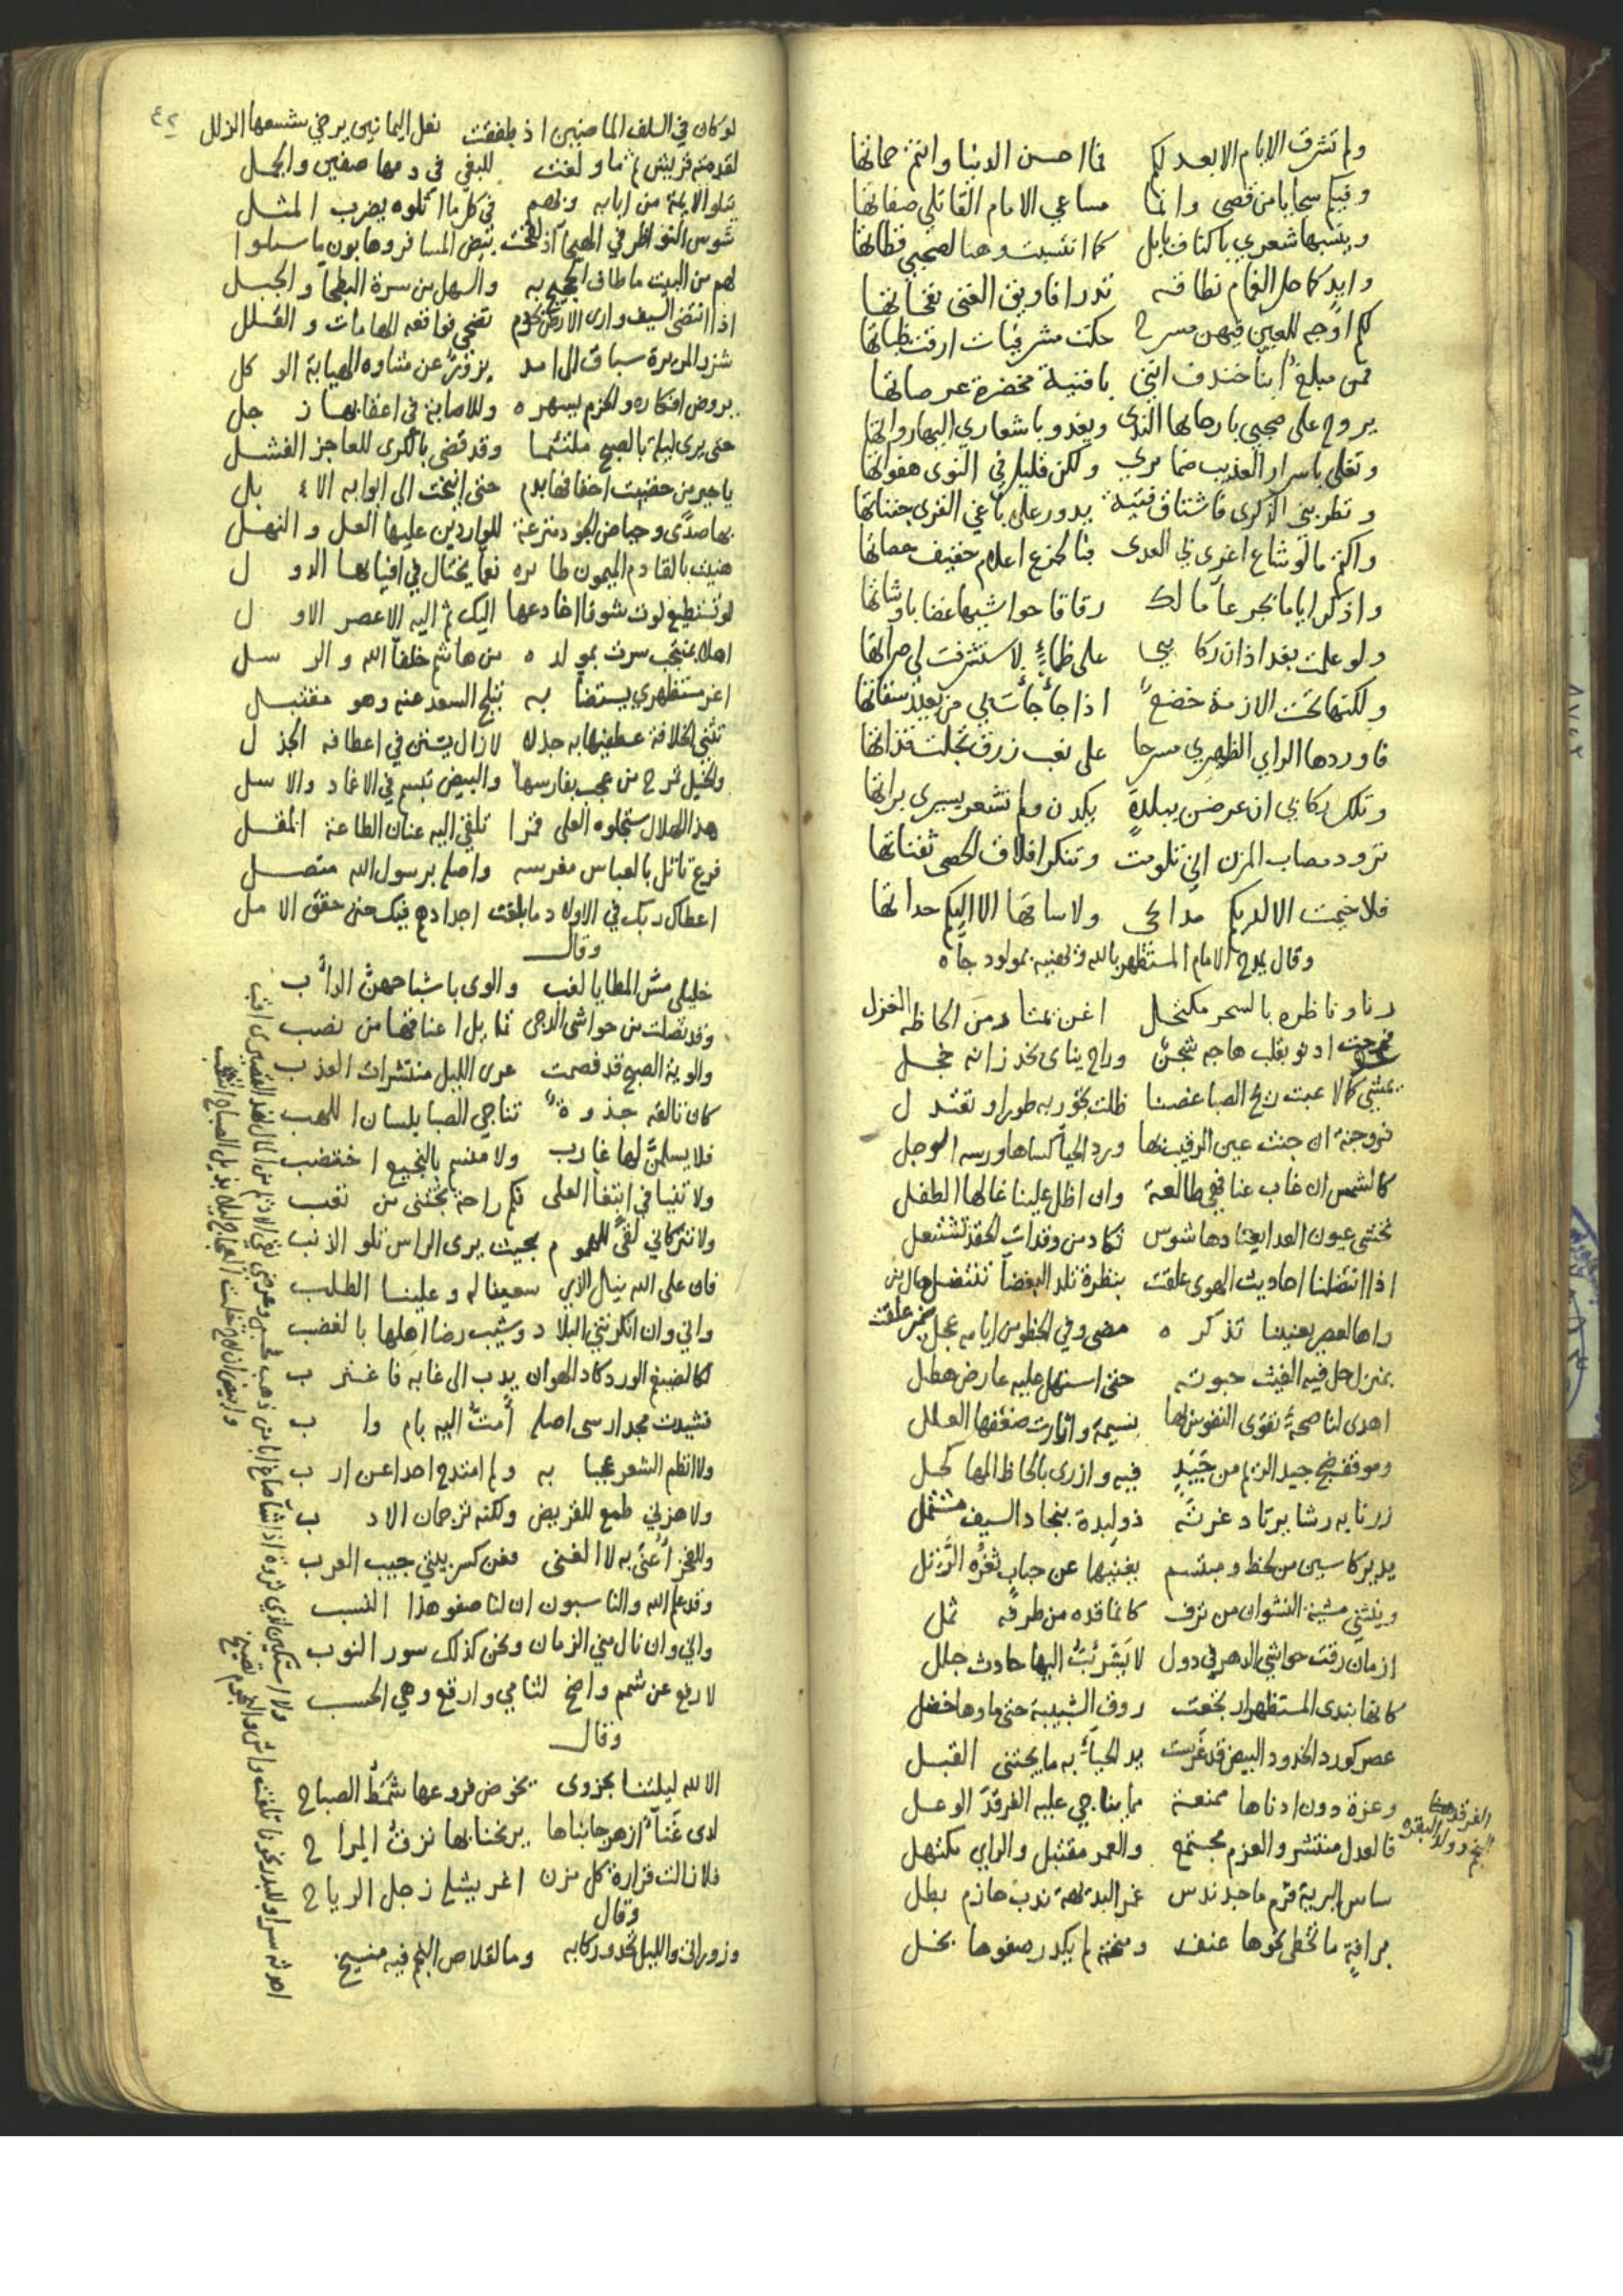 ولم تشرق الايام الا بعدلكم فما احسن الدنيا وانتم حماتها
وفيكم سجايا من قصي وانما مساعي الامام القائلي صفاتها
وينسبها شعري باكناف بابل كما انتسبت وهنا لصحبي قطاتها
وايد كما حل الغمام نطاقه تدر افاويق الغنى نفحاتها
لكم اوجه للعين فيهن مسرح حكت مشرفيات ارقت ظباتها
فمن مبلغ ابنا خندف انني بافنية مخضرة عرصاتها
يروح على صحبي بارجائها الندى ويغدو باشعاري اليها رواتها
وتغلي باسرار العذيب ضمائري ولكن قليل في النوى هفواتها
وتطربني الذكرى فاشتاق فتية يدور على باغي القرى جفناتها
واكتم ما لو شاع اغرى بي العدى فبالجزع اعلام خفيف حصاتها
واذكر اياما بجرعاء مالك رقاقا حواشيها غضابا وشاتها
ولو علمت بغداذ ان ركائبي على ظماء لاستشرفت لي صراتها
ولكنها تحت الازمة خضع اذا جأجأت بي من بعيد سقاتها
فاوردها الراي الظهيري مسرحا على نغب زرق تجلت قذاتها
وتلك ركابي ان عرضن ببلدة يكدن ولم تشعر يسيري براتها
ترود مصاب المزن انى تلومت وتنكر افلاق الحصى ثفناتها
فلا خيمت الا لديكم مدائحي ولا ساقها الا اليكم حداتها
وقال يمدح الامام المستظهر بالله ويهنيه بمولود جاه
رنا وناظره بالسحر مكتحل اغن يمتار من الحاظه الغزل
فرحت ادنو بقلب هاجه شجن وراح يناى بخد زانه خجل
يمشي كما لاعبت ريح الصبا غصنا ظلت تجور به طورا وتعتدل
ذو وجنة ان جنت عين الرقيب بها ورد الحيا كساها ورسه الوجل
كالشمس ان غاب عنا فهي طالعة وان اظل علينا غالها الطفل
نخشى عيون العدا يعتادها شوس تكاد من وقدات الحقد تشتعل
اذا انتضلنا احاديث الهوى علقت بنظرة تلد البغضا تنتضل
واها لعصر يعنينا تذكره مضى وفي الخطو من ايامه عجل
بمنزل حل فيه الغيث حبوته حتى استهل عليه عارض هطل
اهدى لنا صحة تقوى النفوس بها نسيمه واثارت ضعفها العلل
وموقف ضج جيد الريم من جيد فيه وازرى بالحاظ المها كحل
زرنا به رشا يرتاد غرته ذو لبدة بنجاد السيف مشتمل
يدير كاسين من لحظ ومبتسم يغنيها عن حباب ثغره الرتل
وينثني مشية النشوان من ترف كانما قده من طرفه ثمل
ازمان رقت حواشي الدهر في دول لا يشرئب اليها حادث جلل
كانها بندى المستظهر ارتجعت روق الشبيبة حتى ماوها خضل
عصر كورد الخدود البيض قد غرست يد الحياء به ما يجتني القبل
وعزة دون ادناها ممنعة مما يناجي عليه الفرقد الوعل
فالعدل منتشر والعزم مجتمع والعمر مقتبل والراي مكتهل
ساس البرية قرم ماجد ندس غمر البديهة ندب حازم بطل
برافة ما تخطى نحوها عنف ومنحة لم يكدر صفوها بخل
لو كان في السلف الماضين اذ طفقت نعل اليمانين يرخي شسعها الزلل
لقدمته قريش ثم ما ولغت للبغي في دمها صفين والجمل
يتلو الائمة من ابائه وبهم في كل ما اثلوه يضرب المثل
شوس النواظر في الهيجا اذ لقحت بيض المسافر وهابون ما سئلوا
لهم من البيت ما طاف الحجيج به والسهل من سرة البطحا والجبل
اذا انتضى السيف وارى الارض بحر دم تضحي فواقعه الهامات والقلل
شزر المريرة سباق الى امد يزور عن مثناوه الهيابة الوكل
يروض افكاره والحزم يسهره وللاصابة في اعقابها زجل
حتى يرى ليله بالصبح ملتثما وقد قضى بالكرى للعاجز الفشل
يا خير من خضبت اخفافها بدم حتى انيخت الى ابوابه الابل
بها صدى وحياض الجود مترعة للواردين عليها العل والنهل
هنيت بالقادم الميمون طائره نعما يختال في افيائها الدول
لو تستطيع لوت شوقا اخادعها اليك ثم اليه الاعصر الاول
اهلا بمنتجب سرت بمولده من هاشم خلفا الله والرسل
اغر مستظهري يستضا به تبلج السعد عنه وهو مقتبل
تثني الخلافة عطفيها به جذلا لا زال يستن في اعطافه الجذل
والخيل تمرح من عجب بفارسها والبيض تبسم في الاغماد والاسل
هذا الهلال ستجلوه العلى قمرا تلقي اليه عنان الطاعة المقل
فرع تاثل بالعباس مغرسه واصله برسول الله متصل
اعطاك ربك في الاولاد ما بلغت اجدادهم فيك حتى حقق الامل
وقال
خليلي مس المطايا لغب والوى باشباحهن الداب
وقد نصلت من حواشي الدجى تمايل اعناقها من نصب
والوية الصبح قد فصمت عرى الليل منتشرات العذب
كان تالقه جذوة تناجي الصبا بلسان اللهب
فلا يسلمن لها غارب ولا منسم بالنجيع اختضب
ولا تنيا في ابتغا العلى فكم راحة تجتنى من تعب
ولا تتركاني لقى للهموم بحيث يرى الراس تلو الذنب
فان على الله نيل الذي سعينا له وعلينا الطلب
واني وان انكرتني البلاد وشيب رضا اهلها بالغضب
لكالضيغم الورد كاد الهوان يدب الى غابه فاغترب
فشيدت مجدا رسى اصله امت اليه بام واب
ولا انظم الشعر عجبا به ولم امتدح احدا عن ارب
ولا هزني طمع للقريض ولكنه ترجمان الادب
وللفخر اعنى به لا الغنى فعن كسر بيتي جيب العرب
وقد علم الله والناسبون ان لنا صفو هذا النسب
واني وان نال مني الزمان ونحن كذلك سور النوب
لارنو عن شمم واضح لثامي وارقع وهي الحسب
وقال
الا لله ليلتنا بحزوى يخوض فروعها شمط الصباح
لدى غناء ازهر جانباها يرنحنا بها نزق المراح
فلا زالت قرارة كل مزن اغر يشله زجل الرياح
وقال
وزور اتى والليل تحدو ركابه وما لقلاص النجم فيه منيخ